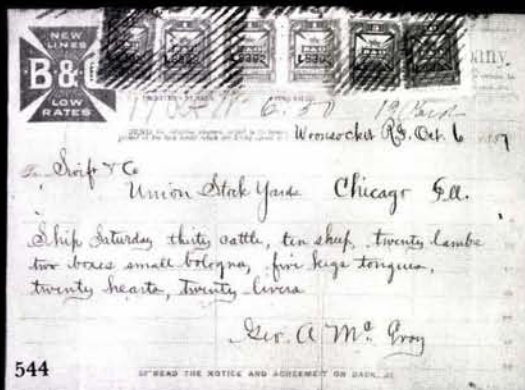 NEW
LINES
B & O
LOW
RATES
Woonsocket R.I. Oct. 6
To Swift & Co
Union Stock Yards Chicago Ill.
Ship Saturday thirty cattle, ten sheep, twenty lambs
two boxes small bologna, five kegs tongues,
twenty hearts, twenty livers
Geo. A McGroy
544
READ THE NOTICE AND AGREEMENT ON BACK